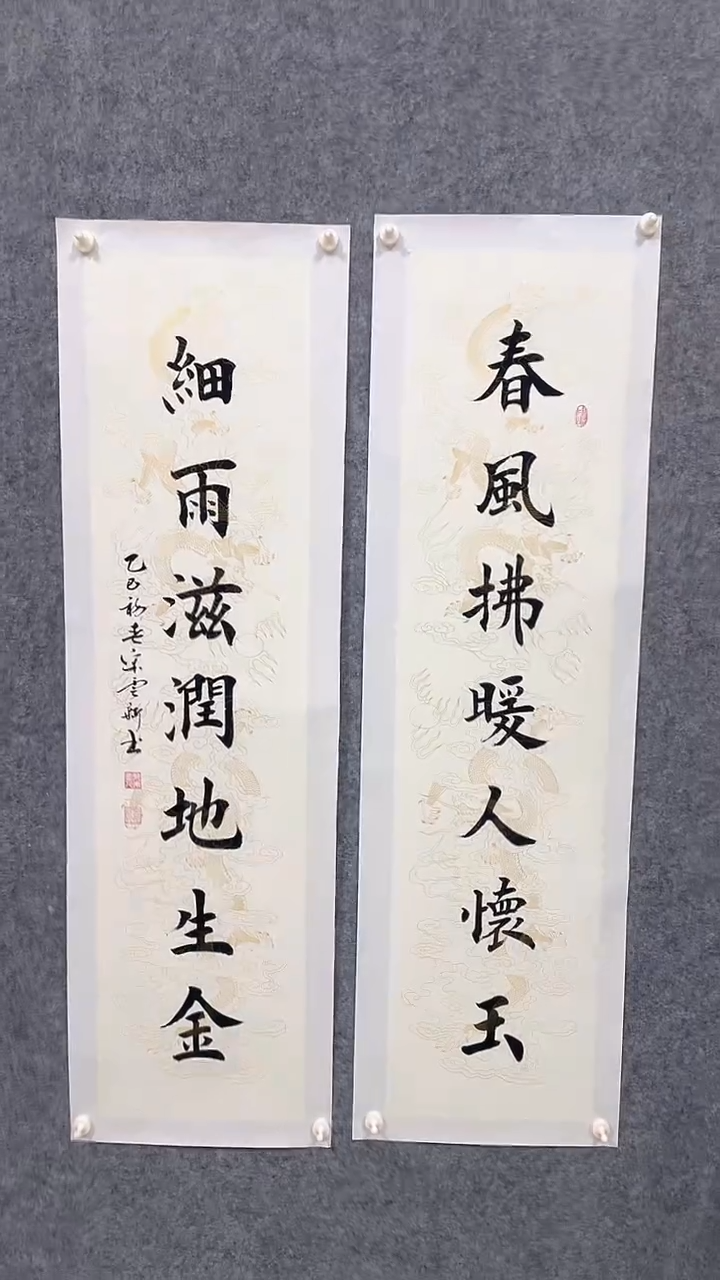 春風拂暖人懷玉
細雨滋潤地生金
乙巳初春宋雲新書